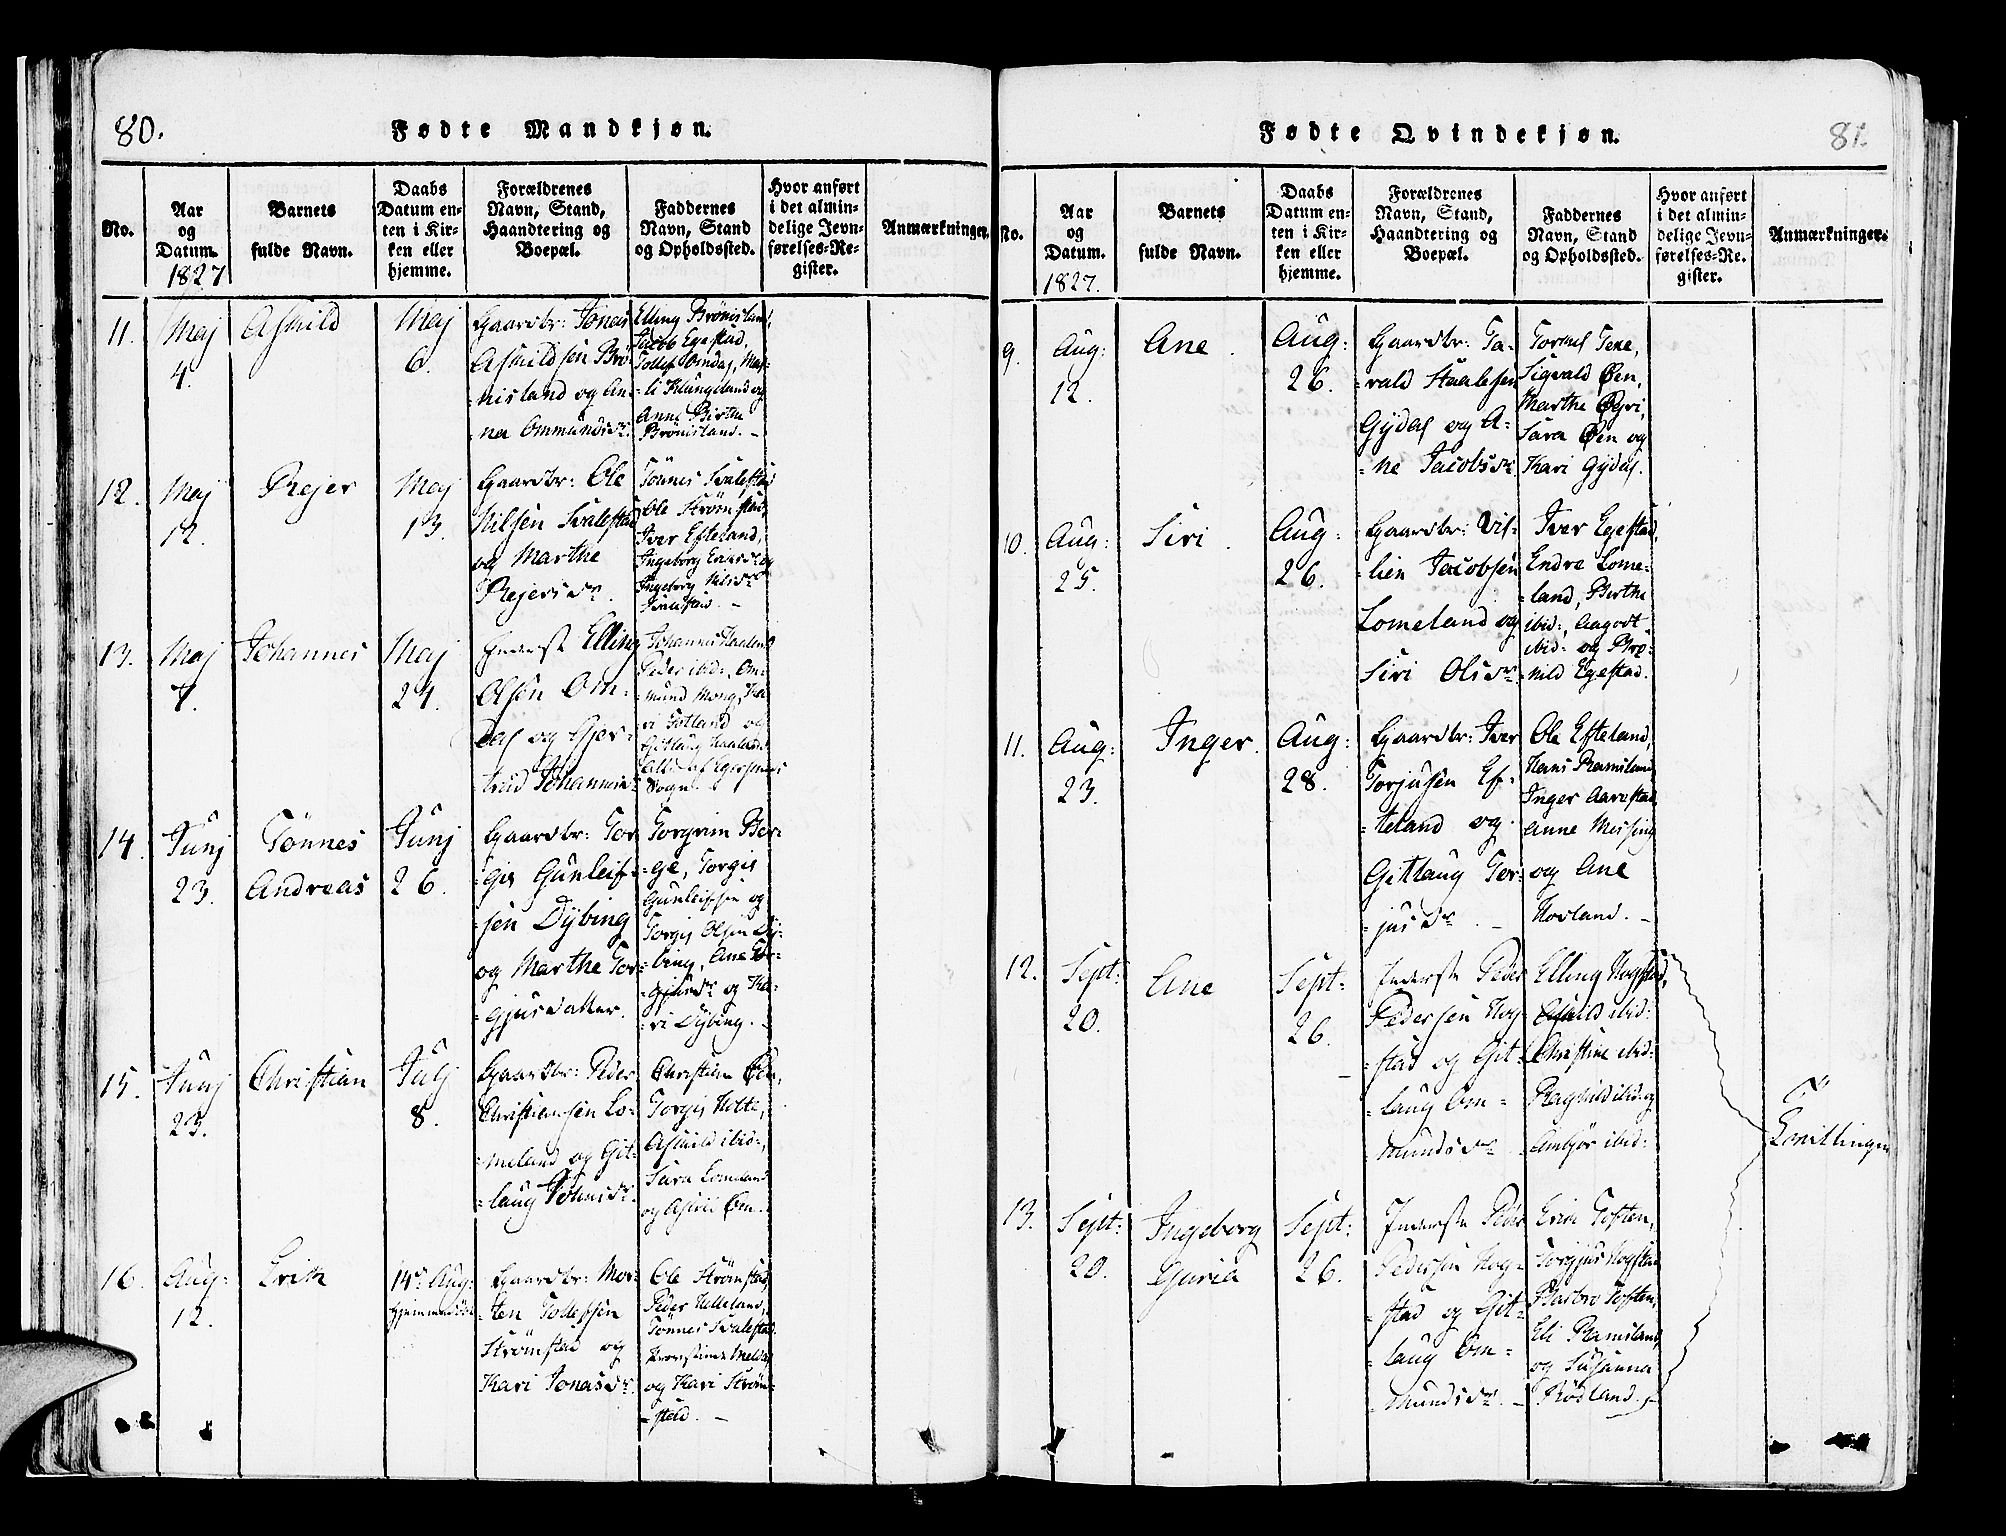 80.
Fødte Mandkjøn.
No.
Aar
og
Datum.
1827
Barnets
fulde Navn.
Daabs
Datum en-
ten i Kir-
ken eller
hjemme.
Forældrenes
Navn, Stand,
Haandtering og
Boepæl.
Faddernes
Navn, Stand
og Opholdssted.
Hvor anført
i det almin-
delige Jevn-
førelses-Re-
gister.
Anmærkninger.
11.
Maj
4.
Asbild
Maj
6.
Gaardbr: Jonas
Brö-
-nisland og An-
-na Ommundsdr.
Elling Brönisland,
Jacob Egestad,
Tollef Omdal, Mar-
-li Klungeland og
Anne Birthe
Brönisland. -
12.
Maj
12.
Rejer
Maj
13.
Gaardbr: Ole
Nilsen Svalestad
og Marthe
Rejersdr.
Tönnes Svalestad
Ole Strömstad,
Iver Efteland,
Ingeborg og
Ingeborg Nilsdr
Svalestad. -
13.
Maj
7.
Johannes
Maj
24.
Inderst Elling
Olsen Om-
dal og Gjer-
trud Johannesdr
Johannes Haaland
Peder ibid:, Om-
-mund Mong, Ka-
ri Gotland og
Gitlaug Haaland.
Alle af Egersunds
Sogn.
14.
Junj
23.
Tönnes
Andreas
Junj
26.
Gaardbr: Tor-
-gis Gunleif-
-sen Dÿbing
og Marthe Tor-
-gjusdatter.
Torgrim Ber-
-ge, Torgis
Gunleifsen og
Torgis Olsen Dÿ-
-bing, Ane Tor-
-gjusdr og Ka-
-ri Dÿbing. -
15.
Junj
23.
Christian
Julj
8.
Gaardbr: Peder
Christiansen Lo-
-meland og Git-
-laug Johnsdr.
Christian Öen,
Torgis Hotte,
Asbild ibid:,
Sara Lomeland
og Öen.
16.
Aug:
12.
Erik
14de Aug:
Hjemmedöbt
Gaardbr: Mor-
-ten Tollefsen
Strömstad og
Kari Jonasdr.
Ole Strömstad,
Peder Helleland,
Tönnes Svalestad
og Kari Ström-
-stad. -
81.
Fødte Qvindekjøn.
No.
Aar
og
Datum.
1827.
Barnets
fulde Navn.
Daabs
Datum en-
ten i Kir-
ken eller
hjemme.
Forældrenes
Navn, Stand,
Haandtering og
Boepæl.
Faddernes
Navn, Stand
og Opholdssted.
Hvor anført
i det almin-
delige Jevn-
førelses-Re-
gister.
Anmærkninger.
9.
Aug:
12.
Ane.
Aug:
26.
Gaardbr: Ta-
-rald Staalesen
Gÿdal og A-
-ne Jacobsdr.
Tene,
Sigvald Öen,
Marthe Ögri,
Sara Öen og
Kari Gÿdal.
10.
Aug:
25.
Siri.
Aug:
26.
Gaardbr: Vil-
-lien Jacobsen
Lomeland og
Siri Olsdr.
Iver Egestad,
Endre Lome-
-land, Birthe
ibid:, Aagodt
ibid: og Brö-
-nild Egestad.
11.
Aug:
23.
Inger.
Aug:
28.
Gaardbr: Iver
Torjusen Ef-
-teland og
Gitlaug Tor-
-jusdr. -
Ole Efteland,
Hans Ramsland
Inger Aarestad,
Anne Missing
og Ane
Hovland. -
12.
Sept:
20.
Ane
Sept:
26.
Inderste Peder
Pedersen Hog-
-stad og Git-
-laug Om-
-mundsdr.
Elling Hogstad,
Asbild ibid:
Christine ibid:
Ragnild ibid: og
Anbjör ibid:
Tvillinger
13.
Sept:
20.
Ingeborg
Guria
Sept:
26.
Inderste Peder
Pedersen Hog-
-stad og Git-
-laug Om-
-mundsdr. -
Erik Toften,
Torgjus Hogstad
Barbro Toften,
Eli Ramsland,
og Susanna
Rödland. -